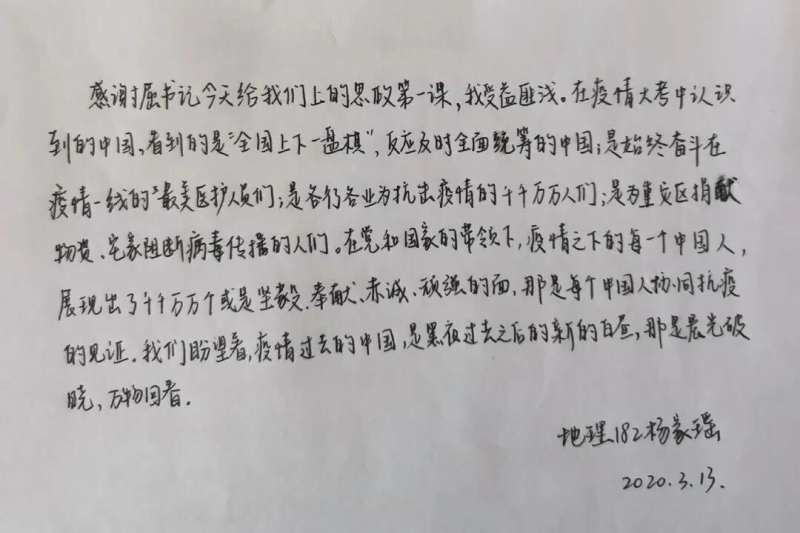 感谢屈书记今天给我们上的思政第一课，我受益匪浅。在疫情大考中认识
到的中国，看到的是“全国上下一盘棋”，反应及时全面统筹的中国；是始终奋斗在
疫情一线的“最美医护人员们；是各行各业为抗击疫情的千千万万人们；是为重灾区捐献
物资、宅家阻断病毒传播的人们。在党和国家的带领下，疫情之下的每一个中国人，
展现出了千千万万个或是坚毅、奉献、赤诚、顽强的面，那是每个中国人协同抗疫
的见证。我们盼望着，疫情过去的中国，是黑夜过去之后的新的白昼，那是晨光破
晓，万物回春。
地理182杨家瑶
2020.3.13.